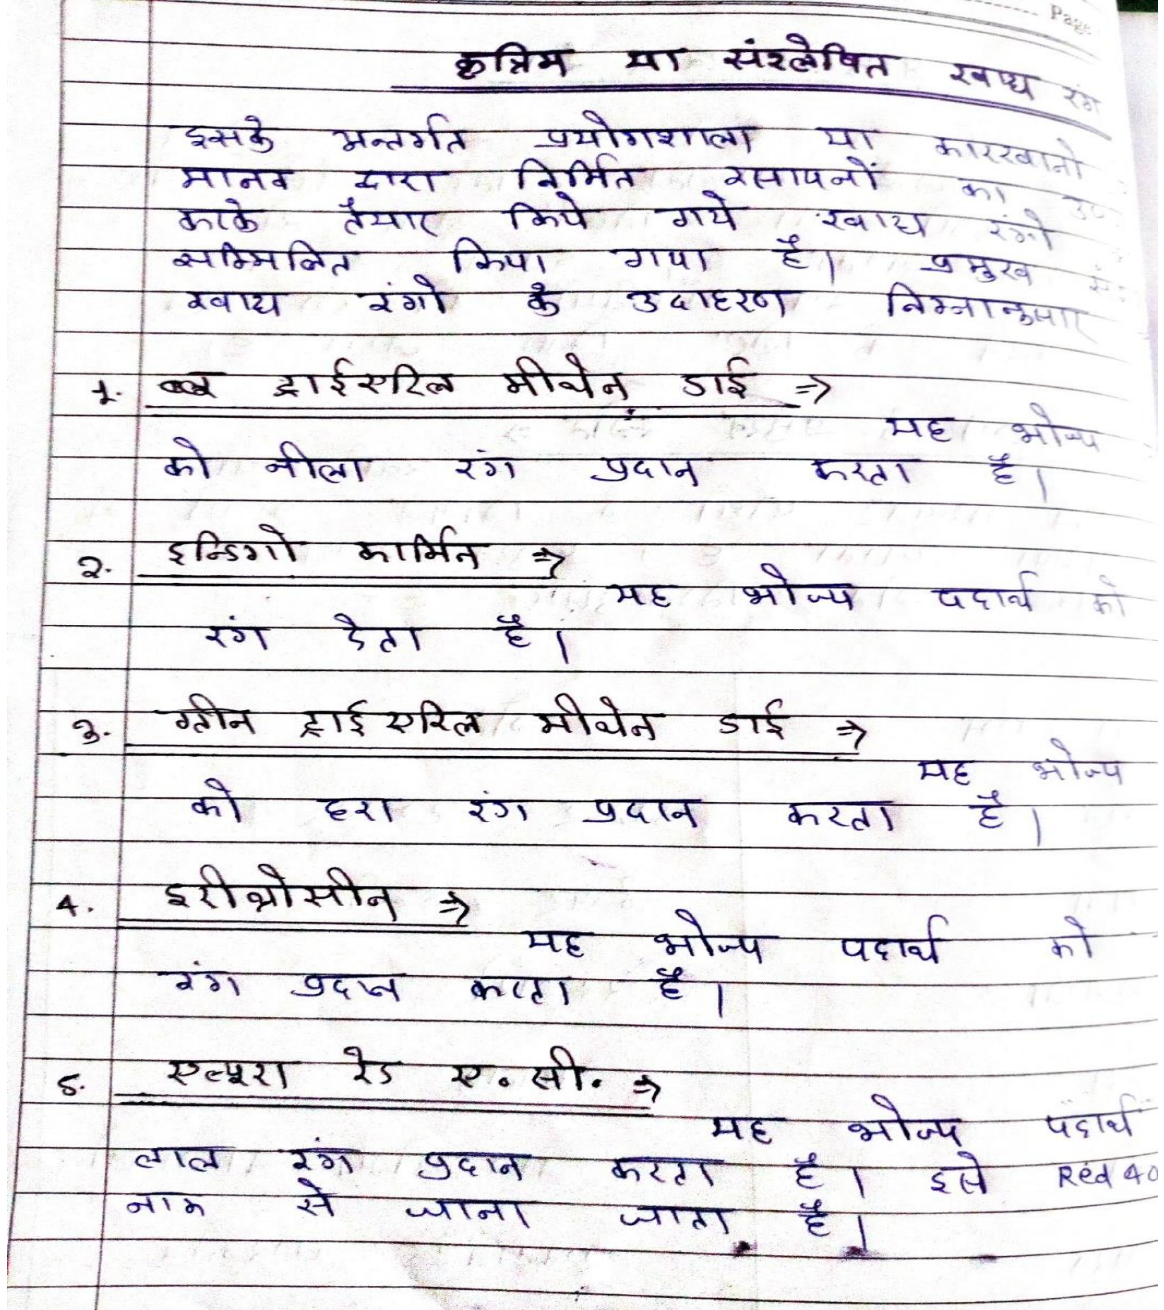 Page
कृत्रिम या संश्लेषित खाद्य रंग
इसके अन्तर्गत प्रयोगशाला या कारखानो
मानव द्वारा निर्मित रसायनों का उप
करके तैयार किये गये खाद्य रंगो
सम्मिलित किया गया है। प्रमुख
खाद्य रंगो के उदाहरण निम्नानुसार
1. ब्लू ट्राईएरिल मीथेन डाई ⇒
यह भोज्य
को नीला रंग प्रदान करता है।
2. इन्डिगो कार्मिन ⇒
यह भोज्य पदार्थ को
रंग देता है।
3. ग्रीन ट्राई एरिल मीथेन डाई ⇒
यह भोज्य
को हरा रंग प्रदान करता है।
4. इरीथ्रोसीन ⇒
यह भोज्य पदार्थ को
रंग प्रदान करता है।
5. एल्यूरा रेड ए. सी. ⇒
यह भोज्य पदार्थ
लाल रंग प्रदान करता है। इसे Red 40
नाम से जाना जाता है।